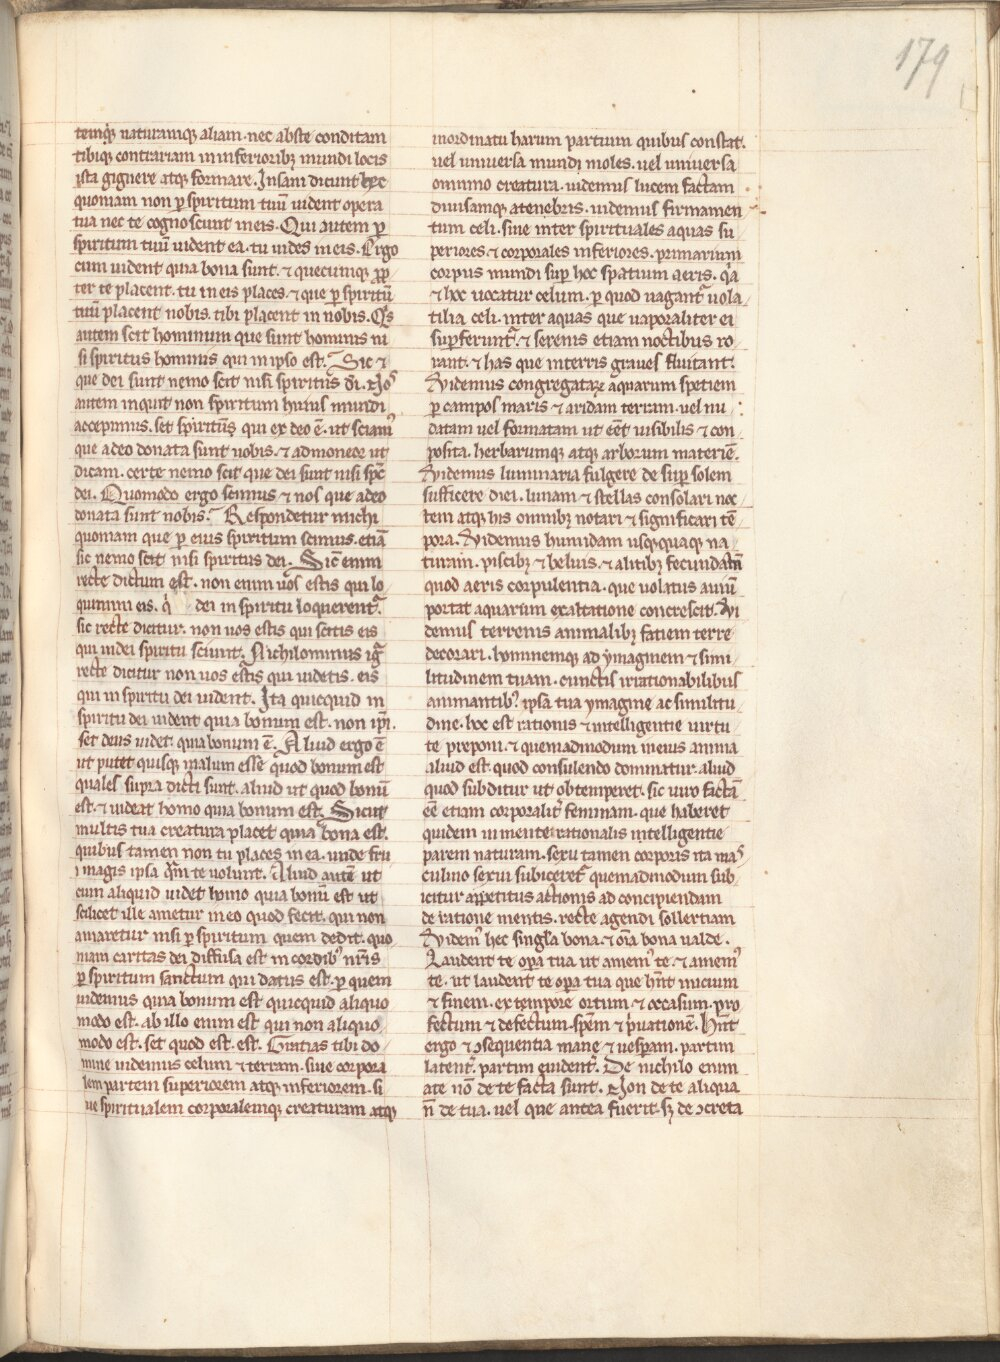 179
temq̨ naturamq̨ aliam · nec abste conditam
tibiq̨ contrariam in inferioribꝫ mundi locis
ista gignere atq̨ formare. Insani dicunt hęc
quoniam non ꝑ spiritum tuū uident opera
tua nec te cognoscunt in eis. Qui autem ꝑ
spiritum tuū uident ea · tu uides in eis. Ergo
cum uident quia bona sunt · ⁊ quecumq̨ ꝓp
ter te placent · tu in eis places · ⁊ que ꝑ spiritū
tuū placent nobis · tibi placent in nobis. Qͥs
autem scit hominum que sunt hominis ni
si spiritus hominis qui in ipso est. Sic ⁊
que dei sunt nemo scit nisi spiritus dī. Noˢ
autem inquit non spiritum huius mundi
accepimus. set spiritūs qui ex deo ē · ut sciamꝰ
que a deo donata sunt nobis. ⁊ admoneor ut
dicam. certe nemo scit que dei sunt nisi spc̄
dei. Quomodo ergo scimus ⁊ nos que a deo
donata sunt nobis. Respondetur michi
quoniam que ꝑ eius spiritum scimus · etiā
sic nemo scit nisi spiritus dei. Sic̄ enim
recte dictum est · non enim uos estis qui lo
quimini eis. qͥ dei in spiritu loquerent᷑.
sic recte dicitur. non uos estis qui scitis eis
qui in dei spiritu sciunt. Nichilominus igͣ
recte dicitur non uos estis qui uidetis. eis
qui in spiritu dei uident. Ita quicquid in
spiritu dei uident quia bonum est. non ip̄i.
set deus uidet · quia bonum ē. Aliud ergo ē
ut putet quisq̨ malum esse quod bonum est
quales supra dicti sunt. aliud ut quod bonū
est · ⁊ uideat homo quia bonum est. Sicut
multis tua creatura placet quia bona est.
quibus tamen non tu places in ea · unde fru
i magis ipsa qͣm te uolunt. Aliud autē ut
cum aliquid uidet homo quia bonū est ut
scilicet ille ametur in eo quod fecit · qui non
amaretur nisi ꝑ spiritum quem dedit · quo
niam caritas dei diffusa est in cordibꝰ nr̄is
ꝑ spiritum sanctum qui datus est · ꝑ quem
uidemus quia bonum est quicquid aliquo
modo est · ab illo enim est qui non aliquo
modo est · set quod est. est. Gratias tibi do
mine uidemus celum ⁊ terram · siue corpora
lem partem superiorem atq̨ inferiorem · si
ue spiritualem corporalemq̨ creaturam atq̨
inordinatu harum partium quibus constat.
uel uniuersa mundi moles · uel uniuersa
omnino creatura · uidemus lucem factam
diuisamq̨ a tenebris · uidemus firmamen
tum celi · siue inter spirituales aquas su
periores · ⁊ corporales inferiores · primarium
corpus mundi suꝑ hoc spatium aeris · qͥa
⁊ hoc uocatur celum · ꝑ quod uagant᷑ uola
tilia celi · inter aquas que uaporaliter ei
suꝑferunt᷑. ⁊ serenis etiam noctibus ro
rant. ⁊ has que in terris graues fluitant.
Videmus congregatarꝫ aquarum spetiem
ꝑ campos maris ⁊ aridam terram · uel nu
datam uel formatam ut eēt uisibilis ⁊ con
posita. herbarumq̨ atq̨ arborum materiē.
Videmus luminaria fulgere de suꝑ solem
sufficere diei · lunam ⁊ stellas consolari noc
tem atq̨ his omnibꝫ notari ⁊ significari tē
pora. Videmus humidam usq̨quaq̨ na
turam · piscibꝫ ⁊ beluis · ⁊ alitibꝫ fecundatā
quod aeris corpulentia · que uolatus auiū
portat aquarum exaltatione concrescit. Vi
demus terrenis animalibꝫ fatiem terre
decorari · hominemq̨ ad ymaginem ⁊ simi
litudinem tuam · cunctis irrationabilibus
animantibꝰ ipsa tua ymagine ac similitu
dine · hoc est rationis ⁊ intelligentie uirtu
te preponi · ⁊ quemadmodum in eius anima
aliud est · quod consulendo dominatur · aliud
quod subditur ut obtemperet · sic uiro factā
eē etiam corporalit᷑ feminam · que haberet
quidem in mente rationalis intelligentie
parem naturam · sexu tamen corporis ita maˢ
culino sexui subiceret᷑ quemadmodum sub
icitur appetitus actionis ad concipiendam
de ratione mentis · recte agendi sollertiam
Videmꝰ hec singl̄a bona · ⁊ oīa bona ualde.
Laudent te oꝑa tua ut amemꝰ te · ⁊ amemꝰ
te · ut laudent te oꝑa tua que hn̄t inicium
⁊ finem · ex tempore ortum ⁊ occasum · pro
fectum ⁊ defectum · spēm ⁊ pͥuationē. Hn̄t
ergo ⁊ ꝯsequentia mane ⁊ uesꝑam · partim
latent᷑ · partim euident᷑. De nichilo enim
a te nō de te facta sunt. Non de te aliqua
n̄ de tua · uel que antea fuerit · sꝫ de ꝯcreta